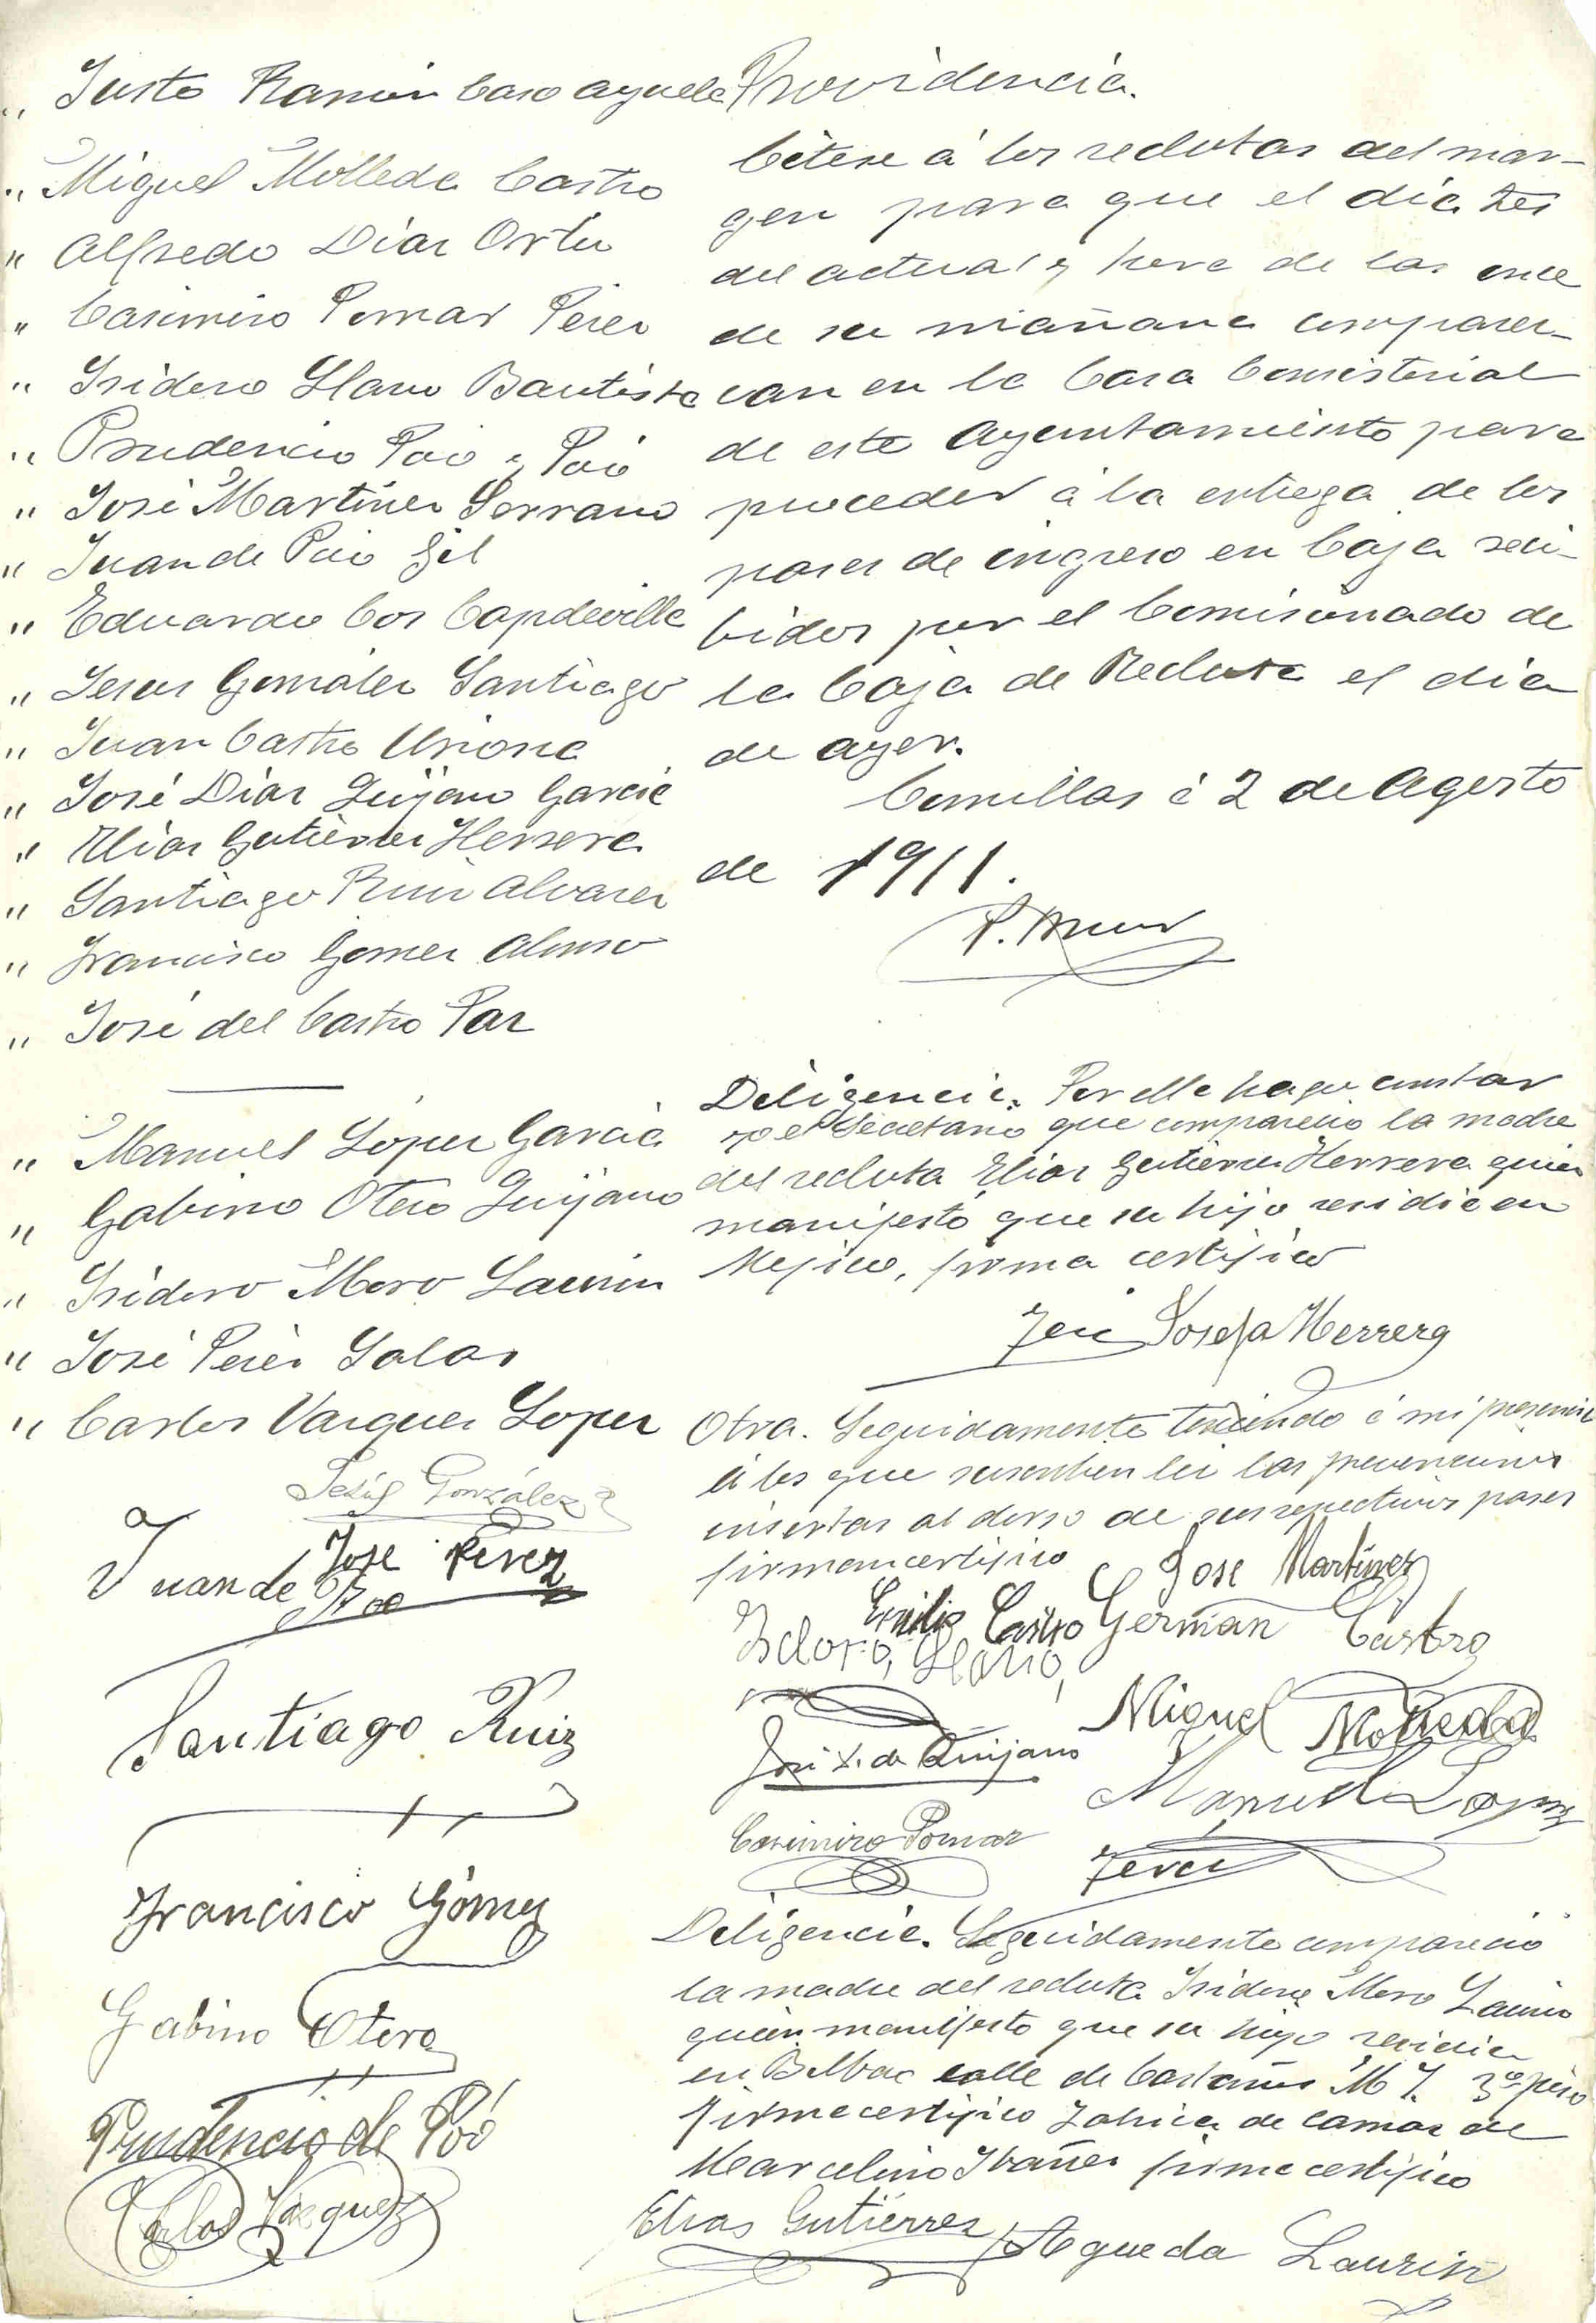 " Justo Ramón Caso Ayuela
" Miguel Molleda Castro
" Alfredo Diaz Ortiz
" Casimiro Pomar Perez
" Isidoro Llano Bautista
" Prudencio Poó y Poó
" José Martinez Serrano
" Juan de Poó Gil
" Eduardo Cos Capdeville
" Jesus Gonzalez Santiago
" Juan Castro
" José Diaz Quijano Garcia
" Elias Gutiérrez Herrera
" Santiago Ruiz Alvarez
" Francisco Gomez Alonso
" José del Castro Paz
" Manuel Lopez Garcia
" Gabino Otero Quijano
" Isidoro Moro Laurin
" José Peréz Salas
" Carlos Vazquez Lopez
Jesús González
José Perez
Juan de Poo
Santiago Ruiz
Francisco Gómez
Gabino Otero
Prudencio de Poó
Carlos Vazquez
Providencia.
Citese á los reclutas del mar-
gen para que el dia tres
del actual y hora de las once
de su mañana comparez-
can en la Casa Consistorial
de este Ayuntamiento para
proceder á la entrega de los
pases de ingreso en Caja reci-
bidos por el Comisionado de
la Caja de Recluta el dia
de ayer.
Comillas á 2 de Agosto
de 1911.
Diligencia. Por ella hago constar
yo el Secretario que compareció la madre
del recluta Elias Gutiérrez Herrera quien
manifestó que su hijo residia en
Mejico, firma certifico
Josefa Herrera
Otra. Seguidamente teniendo á mi presencia
á los que suscriben lei las prevenciones
insertas al dorso de sus respectivos pases
firman certifico
José Martinez
Emilio Castro German Castro
Isidoro Llano
Miguel Molleda
José D. de Quijano
Manuel Lopez
Casimiro Pomar
Diligencia. Seguidamente compareció
la madre del recluta Isidoro Moro Laurin
quien manifesto que su hijo residia
en Bilbao calle de Castaños Nº 7. 3º piso
firma certifico fabrica de camas de
Marcelino Ibañez firma certifico
Elias Gutiérrez
Agueda Laurin